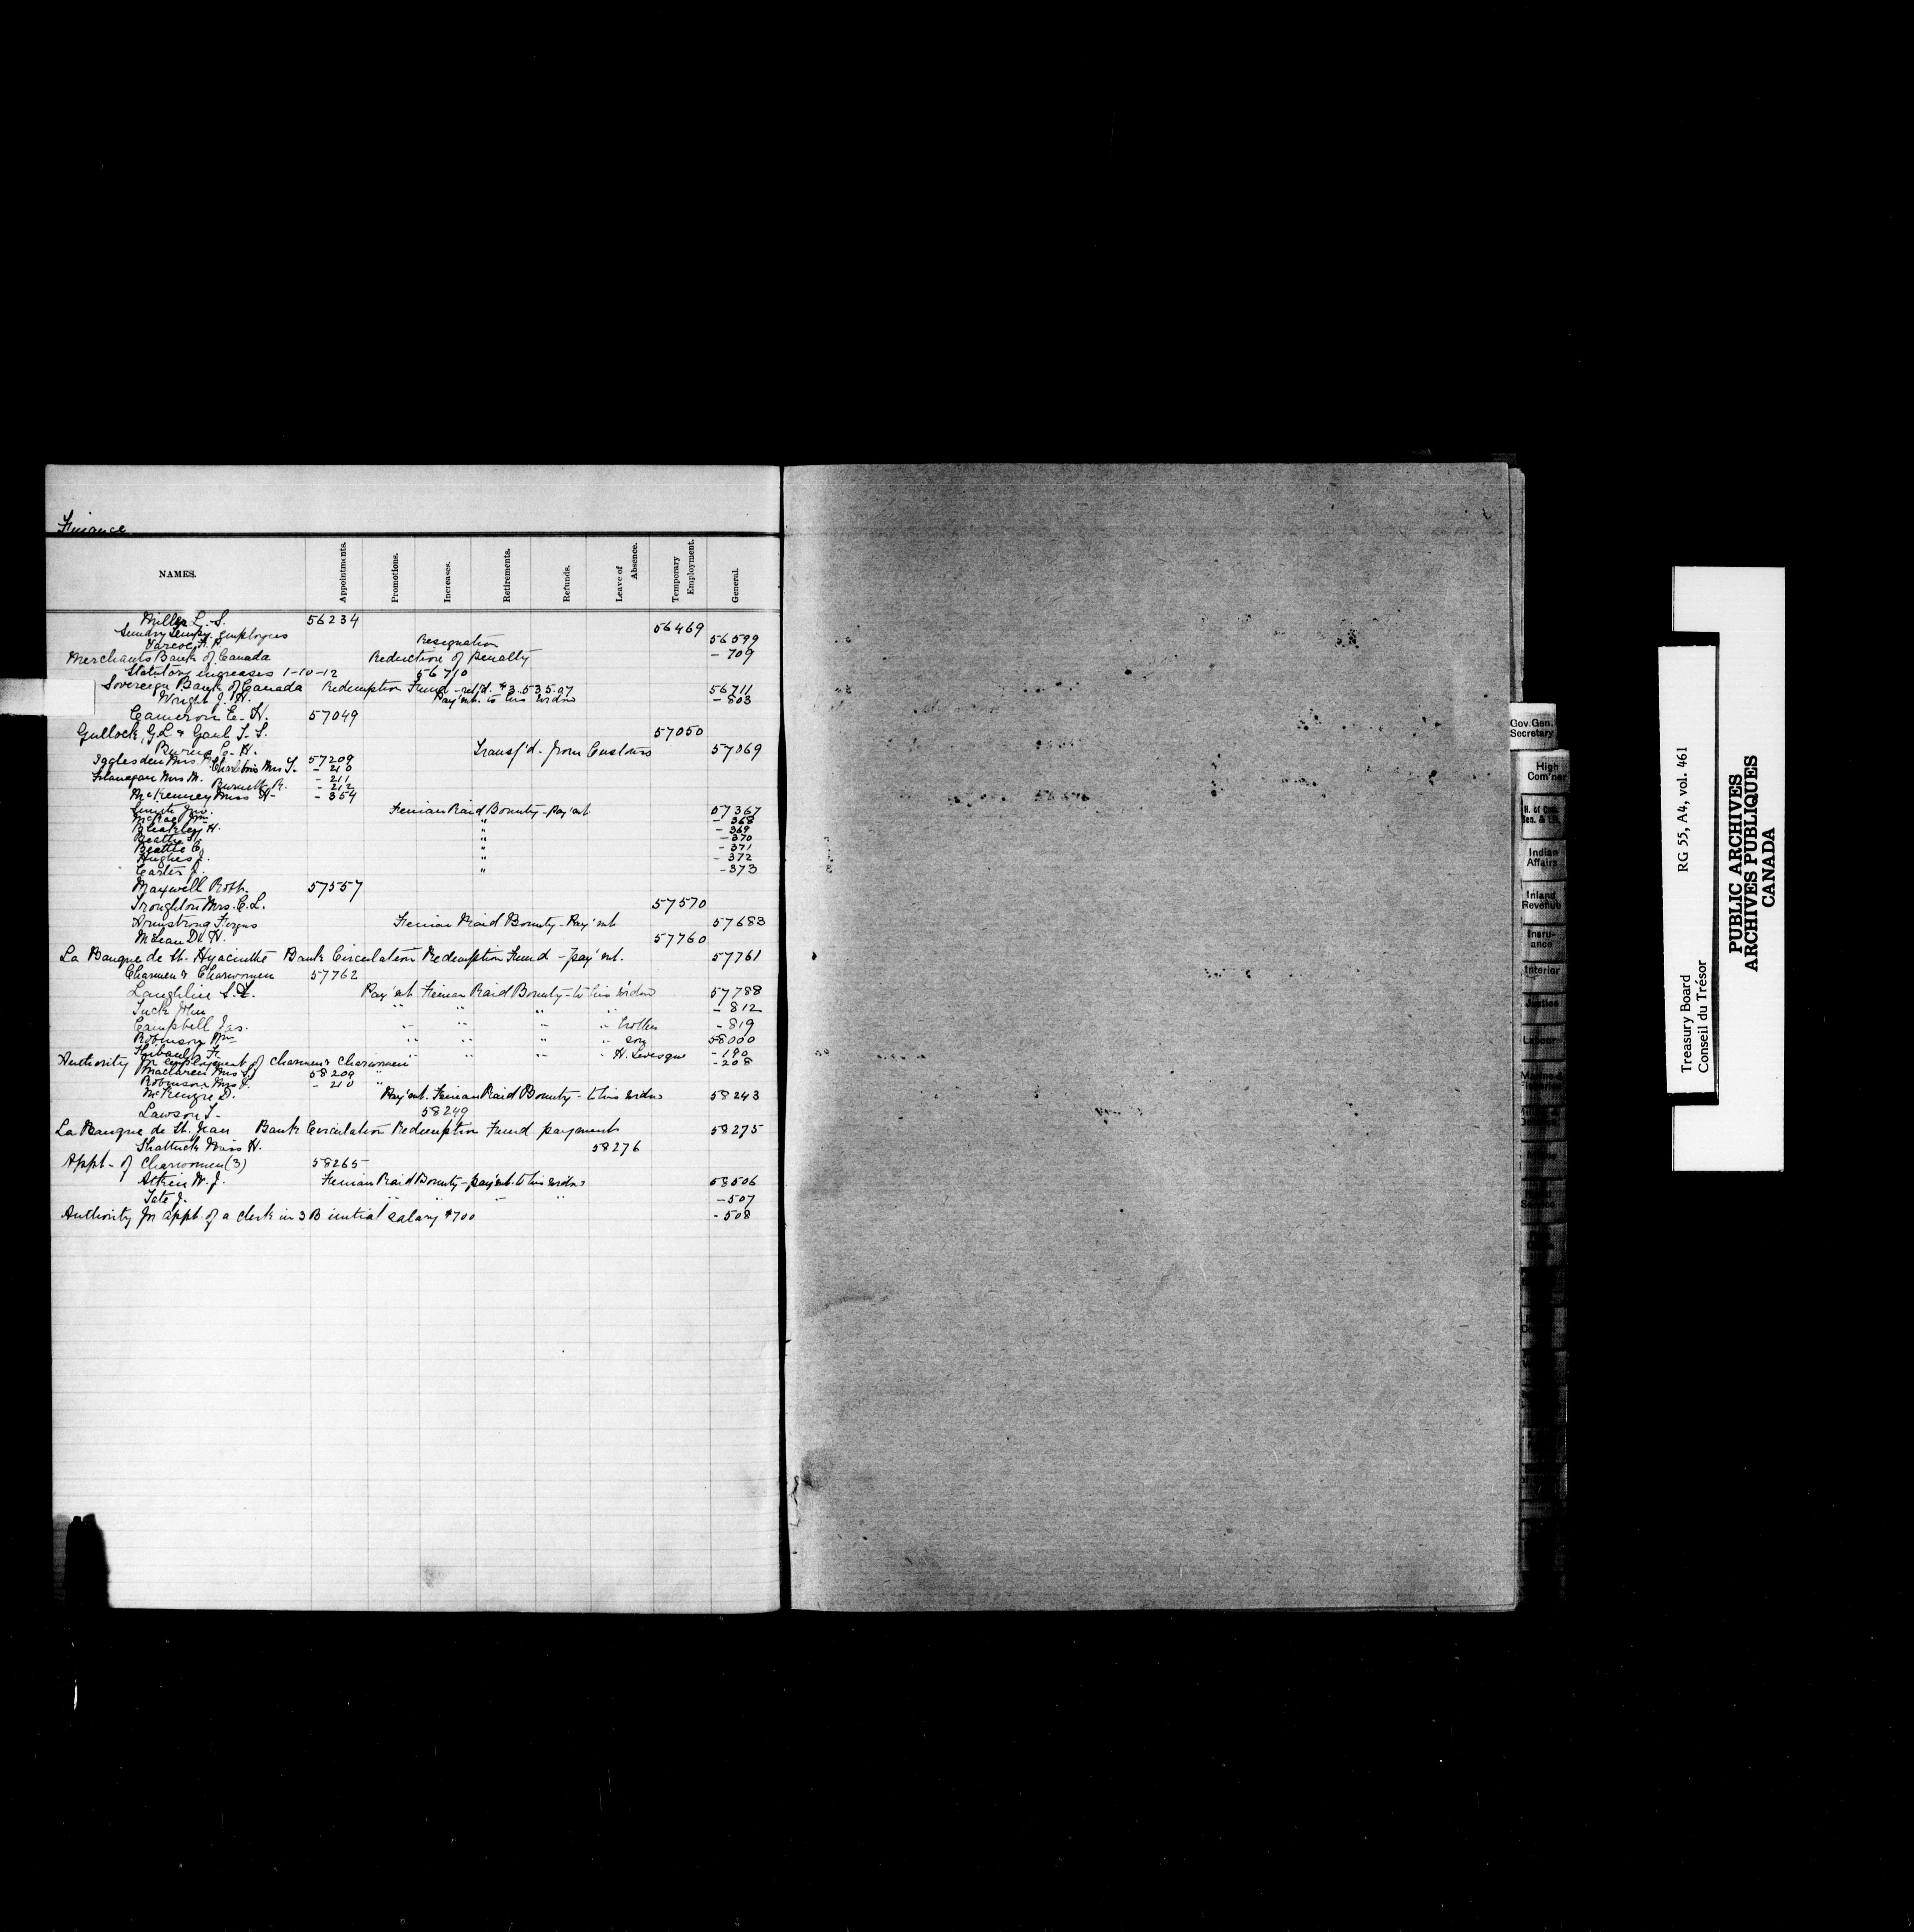 Finance
NAMES. Appointments. Promotions. Increases. Retirements. Refunds. Leave of Absence. Temporary Employment. General.
Miller L. S. 56234
Sundry tempy. employees 56469
Varcoe, A. P. Resignation 56599
Merchants Bank of Canada Reduction of Penalty - 709
Statutory increases 1-10-12 56710
Sovereign Bank of Canada Redemption Fund - ref'd. $3.535.07 56711
Wright J. H. Pay'mt. to his widow - 803
Cameron E. H. 57049
Gullock, G L & Gaul T. S. 57050
Burns C. H. Transf'd. from Customs 57069
Igglesden Mrs. 57209
Charlebois Mrs T. - 210
Flanagan Mrs M. - 211
Burnett R. - 212
McKenney Miss H - 354
Smith Jno. Fenian Raid Bounty - Pay'mt 57367
McRae Wm " - 368
Bleakley H. " - 369
Beattie " - 370
Beattie C. " - 371
Hughes J. " - 372
Carter J. " - 373
Maxwell Robt. 57557
Troughton Mrs. C. L. 57570
Armstrong Fergus Fenian Raid Bounty - Pay'mt 57683
McLean D. H. 57760
La Banque de St. Hyacinthe Bank Circulation Redemption Fund - pay'mt. 57761
Charmen & Charwomen 57762
Laughlin S. L. Pay'mt Fenian Raid Bounty - to his widow 57788
Tuck John " " " " - 812
Campbell Jas. " " " " brother - 819
Robinson Wm " " " " son 58000
Thibault F. " " " " H. Levesque - 190
Authority for employment of charmen & charwomen - 208
Maclaren Mrs S. 58209 "
Robinson Mrs J. - 210 "
McKenzie D. Pay'mt. Fenian Raid Bounty - to his widow 58243
Lawson T. 58249
La Banque de St. Jean Bank Circulation Redemption Fund payment 58275
Shattuck Miss H. 58276
Appt. of Charwomen (3) 58265
Aitkin W. J. Fenian Raid Bounty - pay'mt. to his widow 58506
Tate J. " " " " - 507
Authority for appt. of a clerk in 3 B initial salary $700 - 508
Gov. Gen. Secretary
High Com'ner
H. of Com. Sen. & Lib.
Indian Affairs
Inland Revenue
Insurance
Interior
Justice
Labour
Treasury Board RG 55, A4, vol. 461
Conseil du Trésor
PUBLIC ARCHIVES
ARCHIVES PUBLIQUES
CANADA